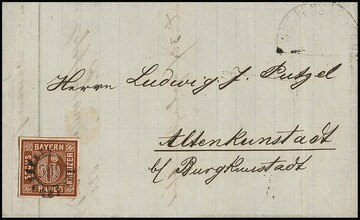 Herrn Ludwig J. Putzel
Altenkunstadt
b/ Burgkunstadt
BAYERN
SECHS
KREUZER
FRANCO